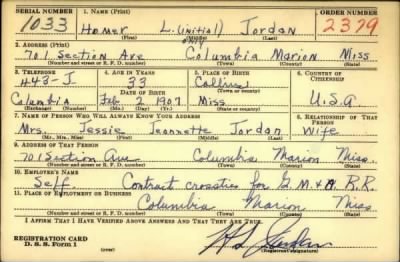 SERIAL NUMBER 1. NAME (Print) ORDER NUMBER
1033 Homer L. (initial) Jordan 2379
(First) (Middle) (Last)
2. ADDRESS (Print)
701 Section Ave Columbia Marion Miss
(Number and street or R. F. D. number) (Town) (County) (State)
3. TELEPHONE 4. AGE IN YEARS 5. PLACE OF BIRTH 6. COUNTRY OF CITIZENSHIP
443-J 33 Collins
DATE OF BIRTH (Town or county)
Columbia Feb 2 1907 Miss U.S.A
(Exchange) (Number) (Mo.) (Day) (Yr.) (State or country)
7. NAME OF PERSON WHO WILL ALWAYS KNOW YOUR ADDRESS 8. RELATIONSHIP OF THAT PERSON
Mrs. Jessie Jeannette Jordan Wife
(Mr., Mrs., Miss) (First) (Middle) (Last)
9. ADDRESS OF THAT PERSON
701 Section Ave Columbia Marion Miss.
(Number and street or R. F. D. number) (Town) (County) (State)
10. EMPLOYER'S NAME
Self. Contract crossties for G. M. & N. R.R.
11. PLACE OF EMPLOYMENT OR BUSINESS
Columbia Marion Miss
(Number and street or R. F. D. number) (Town) (County) (State)
I AFFIRM THAT I HAVE VERIFIED ABOVE ANSWERS AND THAT THEY ARE TRUE.
REGISTRATION CARD
D. S. S. Form 1 (Registrant's signature)